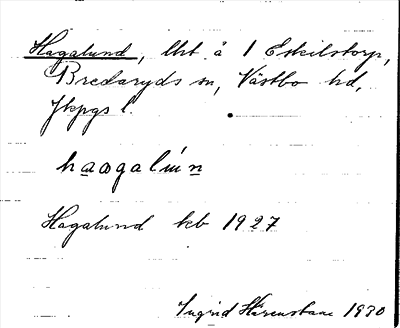 Hagalund, lht å 1 Eskilstorp,
Bredaryds sn, Västbo hd,
Jkpgs l.
Hagalund kb 1927
Ingrid 1930